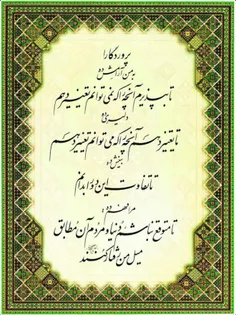 پروردگارا
به من آرامش ده
تا بپذیرم آنچه را که نمی توانم تغییر دهم
دلیری ده
تا تغییر دهم آنچه را که می توانم تغییر دهم
بینش ده
تا تفاوت این دو را بدانم
مرا فهم ده
تا متوقع نباشم دنیا و مردم آن مطابق
میل من رفتار کنند